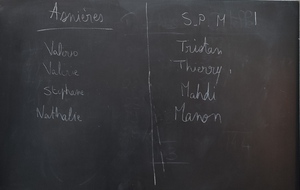 Asnières
Valerie
Stéphane
Nathalie
S.P.M
Tristan
Thierry
Mahdi
Manon